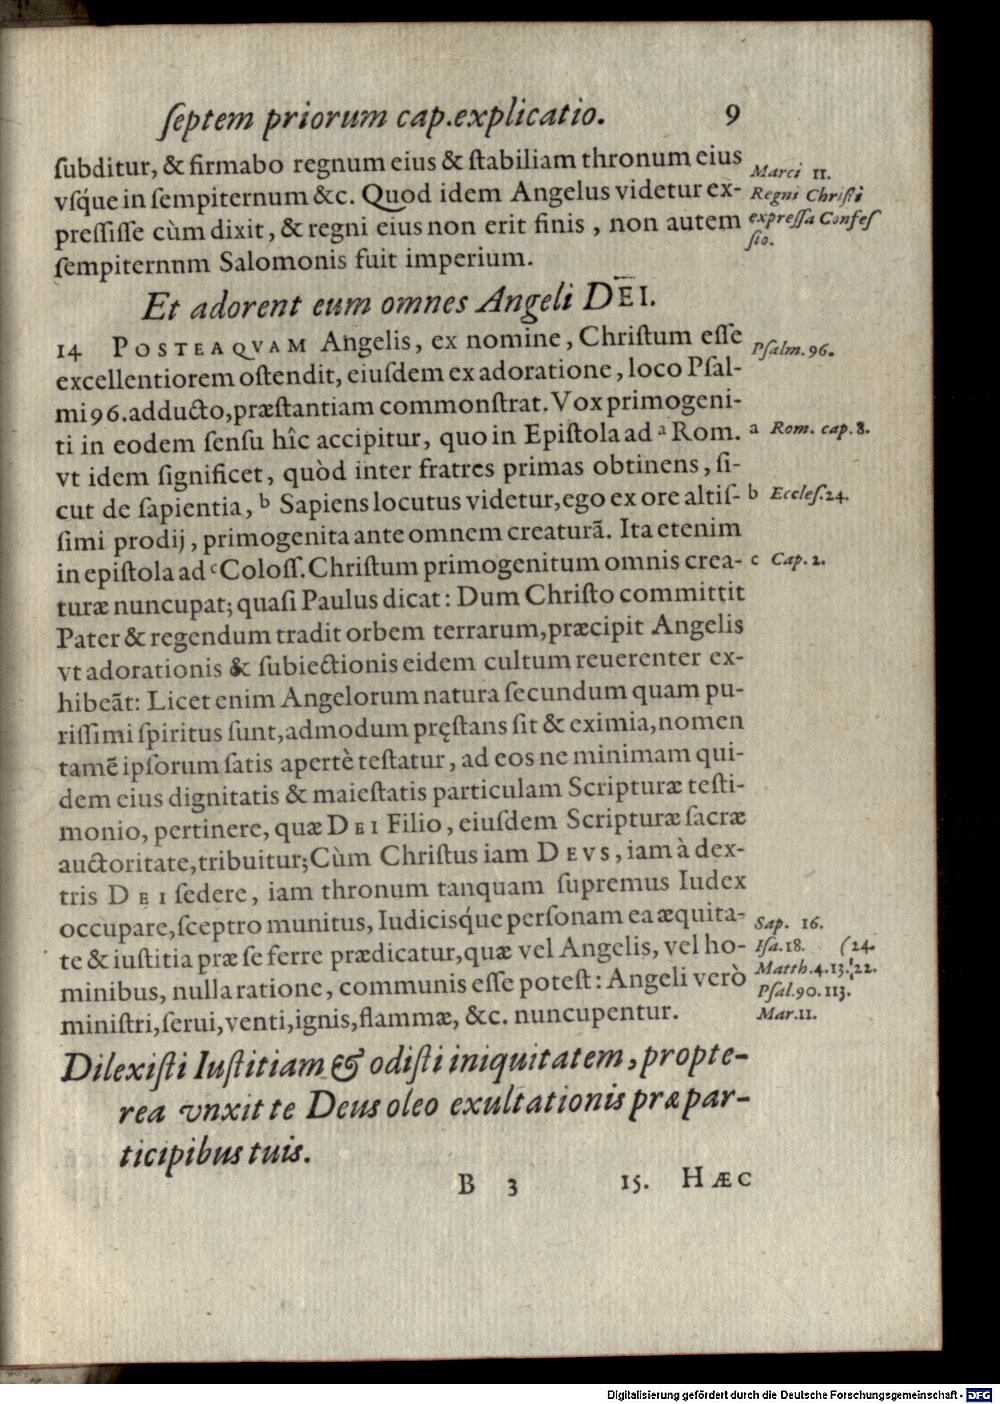 ſeptem priorum cap.explicatio. 9
ſubditur, & firmabo regnum eius & ſtabiliam thronum eius
vſq́ue in ſempiternum &c. Quod idem Angelus videtur ex-
preſſiſſe cùm dixit, & regni eius non erit finis, non autem
ſempiternnm Salomonis fuit imperium.
Marci 11.
Regni Chriſti
expreſſa Confeſ
ſio.
Et adorent eum omnes Angeli DEI.
14 POSTEAQVAM Angelis, ex nomine, Chriſtum eſſe
excellentiorem oſtendit, eiuſdem ex adoratione, loco Pſal-
mi 96. adducto, præſtantiam commonſtrat. Vox primogeni-
ti in eodem ſenſu hîc accipitur, quo in Epiſtola ad ᵃ Rom.
vt idem ſignificet, quòd inter fratres primas obtinens, ſi-
cut de ſapientia, ᵇ Sapiens locutus videtur, ego ex ore altiſ-
ſimi prodij, primogenita ante omnem creaturã. Ita etenim
in epiſtola ad ᶜ Coloſſ. Chriſtum primogenitum omnis crea-
turæ nuncupat; quaſi Paulus dicat: Dum Chriſto committit
Pater & regendum tradit orbem terrarum, præcipit Angelis
vt adorationis & ſubiectionis eidem cultum reuerenter ex-
hibeãt: Licet enim Angelorum natura ſecundum quam pu-
riſſimi ſpiritus ſunt, admodum pręſtans ſit & eximia, nomen
tamẽ ipſorum ſatis apertè teſtatur, ad eos ne minimam qui-
dem eius dignitatis & maieſtatis particulam Scripturæ teſti-
monio, pertinere, quæ DEI Filio, eiuſdem Scripturæ ſacræ
auctoritate, tribuitur; Cùm Chriſtus iam DEVS, iam à dex-
tris DEI ſedere, iam thronum tanquam ſupremus Iudex
occupare, ſceptro munitus, Iudicisq́ue perſonam ea æquita-
te & iuſtitia præ ſe ferre prædicatur, quæ vel Angelis, vel ho-
minibus, nulla ratione, communis eſſe poteſt: Angeli verò
miniſtri, ſerui, venti, ignis, flammæ, &c. nuncupentur.
Pſalm. 96.
a Rom. cap. 8.
b Eccleſ. 24.
c Cap. 2.
Sap. 16.
Iſa. 18. (24.
Matth. 4. 13. 22.
Pſal. 90. 113.
Mar. 11.
Dilexiſti Iuſtitiam & odiſti iniquitatem, propte-
rea vnxit te Deus oleo exultationis præ par-
ticipibus tuis.
B 3 15. HÆC
Digitalisierung gefördert durch die Deutsche Forschungsgemeinschaft - DFG